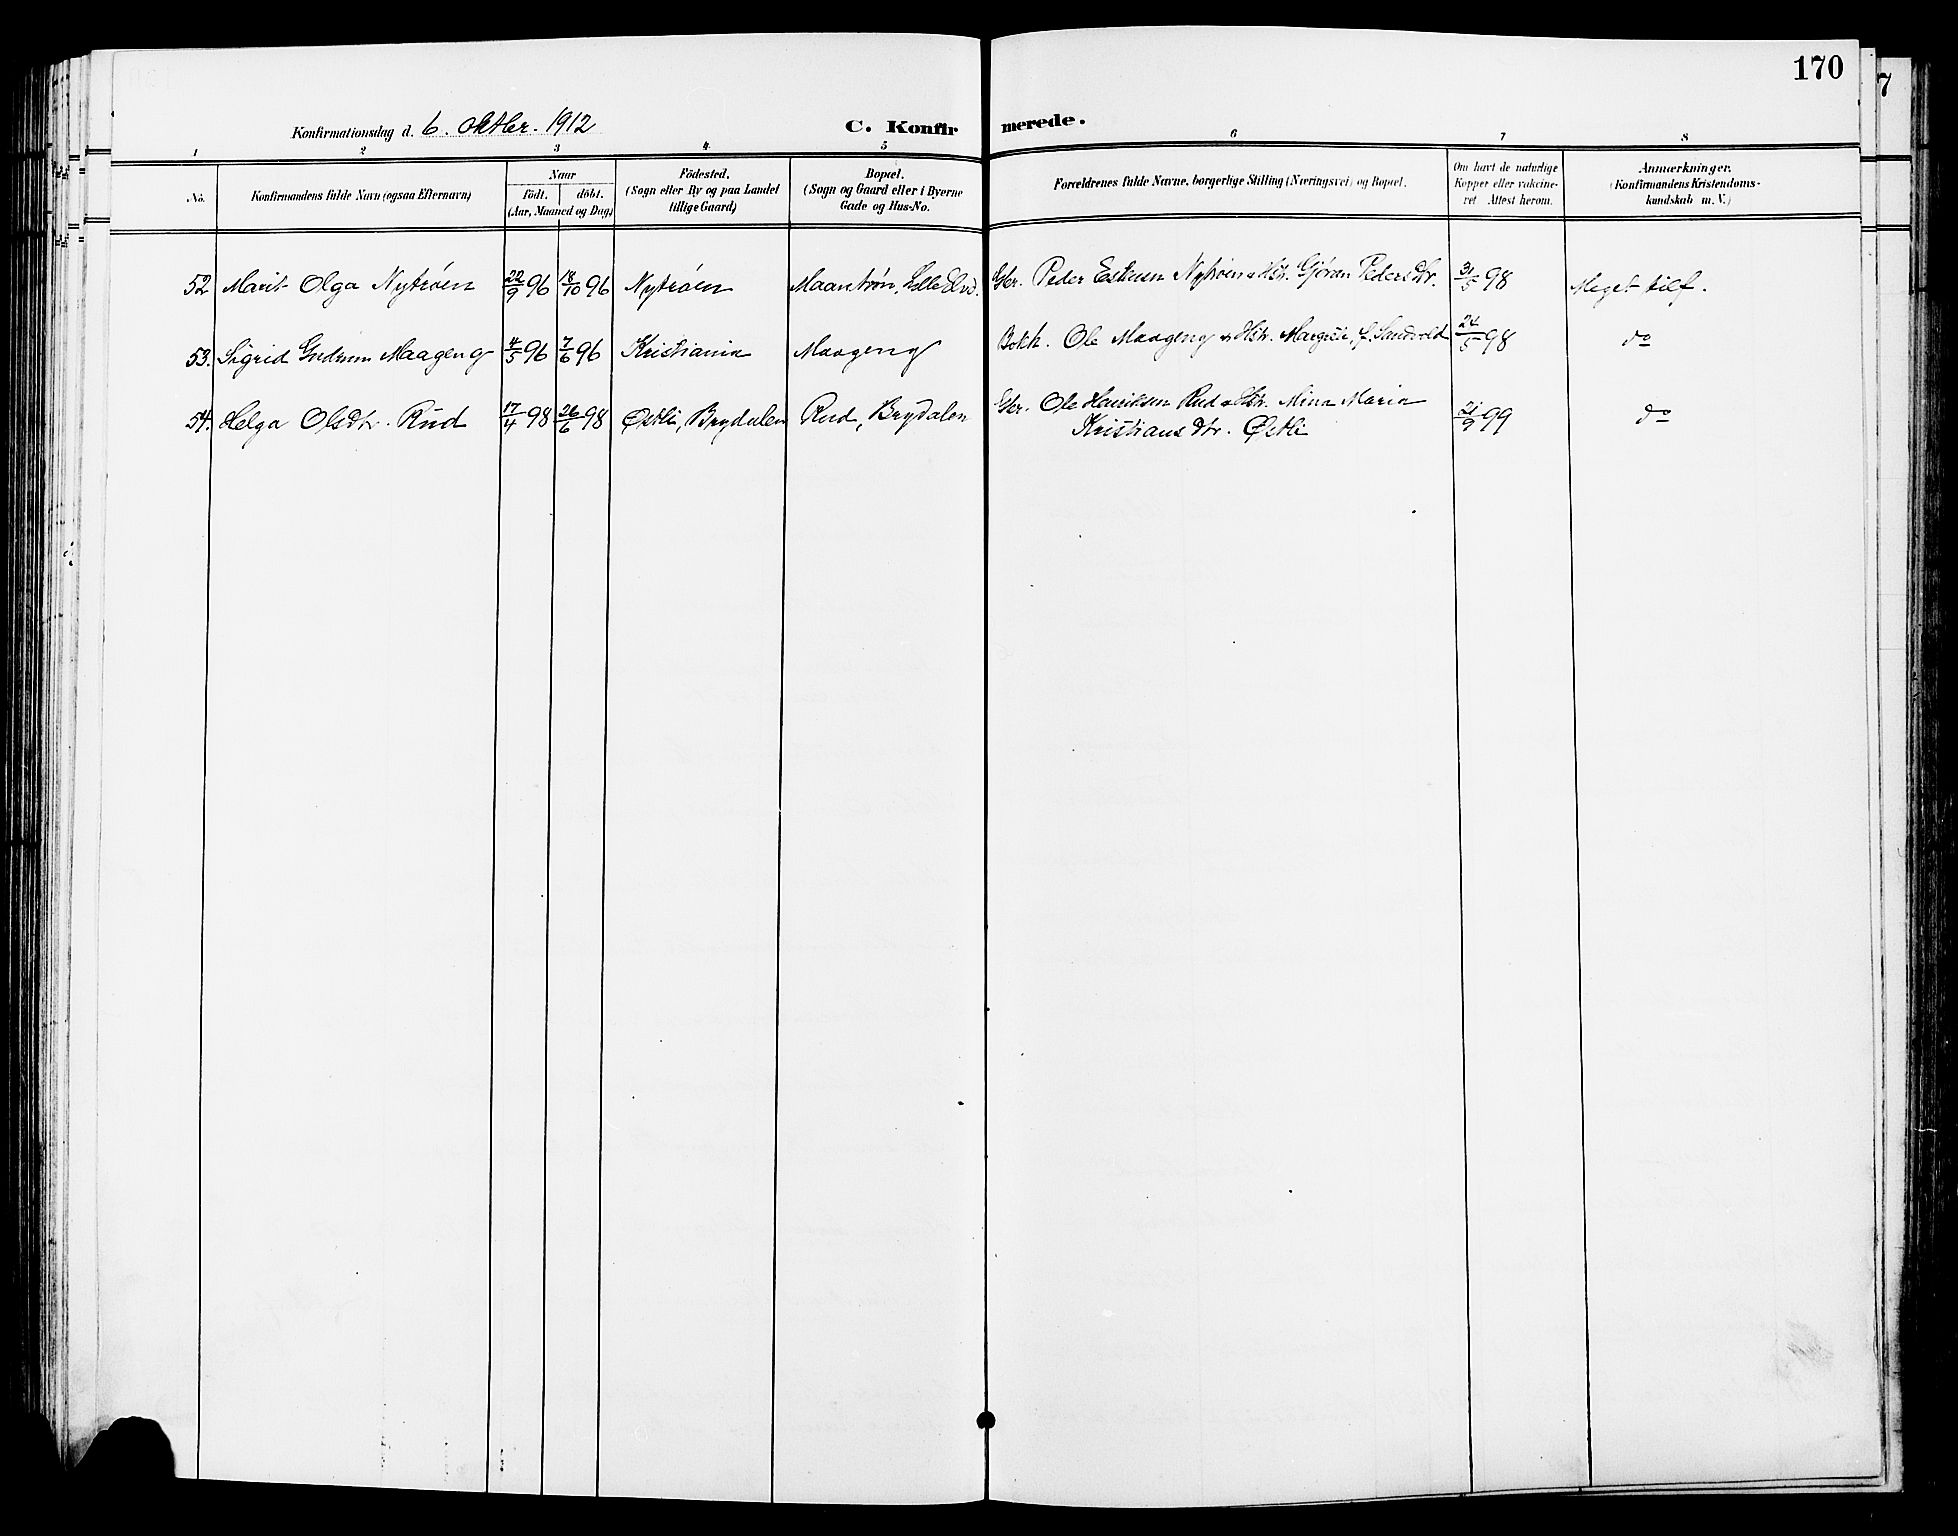 170
7
Konfirmationsdag d. 6. oktbr. 1912
C. Konfirmerede.
1 2 3 4 5 6 7 8
No.
Konfirmandens fulde Navn (ogsaa Efternavn)
Naar
födt. döbt.
(Aar, Maaned og Dag)
Födested.
(Sogn eller By og paa Landet
tillige Gaard)
Bopæl.
(Sogn og Gaard eller i Byerne
Gade og Hus-No.
Forældrenes fulde Navne, borgerlige Stilling (Næringsvei) og Bopæl.
Om havt de naturlige
Kopper eller vakcine-
ret Attest herom.
Anmærkninger.
(Konfirmandens Kristendoms-
kundskab m. V.)
52 Marit Olga Nytrøen 22/9 96 18/10 96 Nytrøen Maantrøn, Lille Elvd. Gbr. Peder Estensen Nytrøen & Hstr. Gjøran Pedersdtr. 31/5 98 Meget tilf.
53. Sigrid Gudrun Maageng 4/5 96 7/6 96 Kristiania Maageng Bokh. Ole Maageng & Hstr. Margrete, f. Sandvold 24/5 98 do
54. Helga Olsdtr. Rud 17/4 98 26/6 98 Østli, Brydalen Rud, Brydalen Gbr. Ole Henriksen Rud & Hstr. Mina Maria
Kristiansdtr. Østli 21/9 99 do